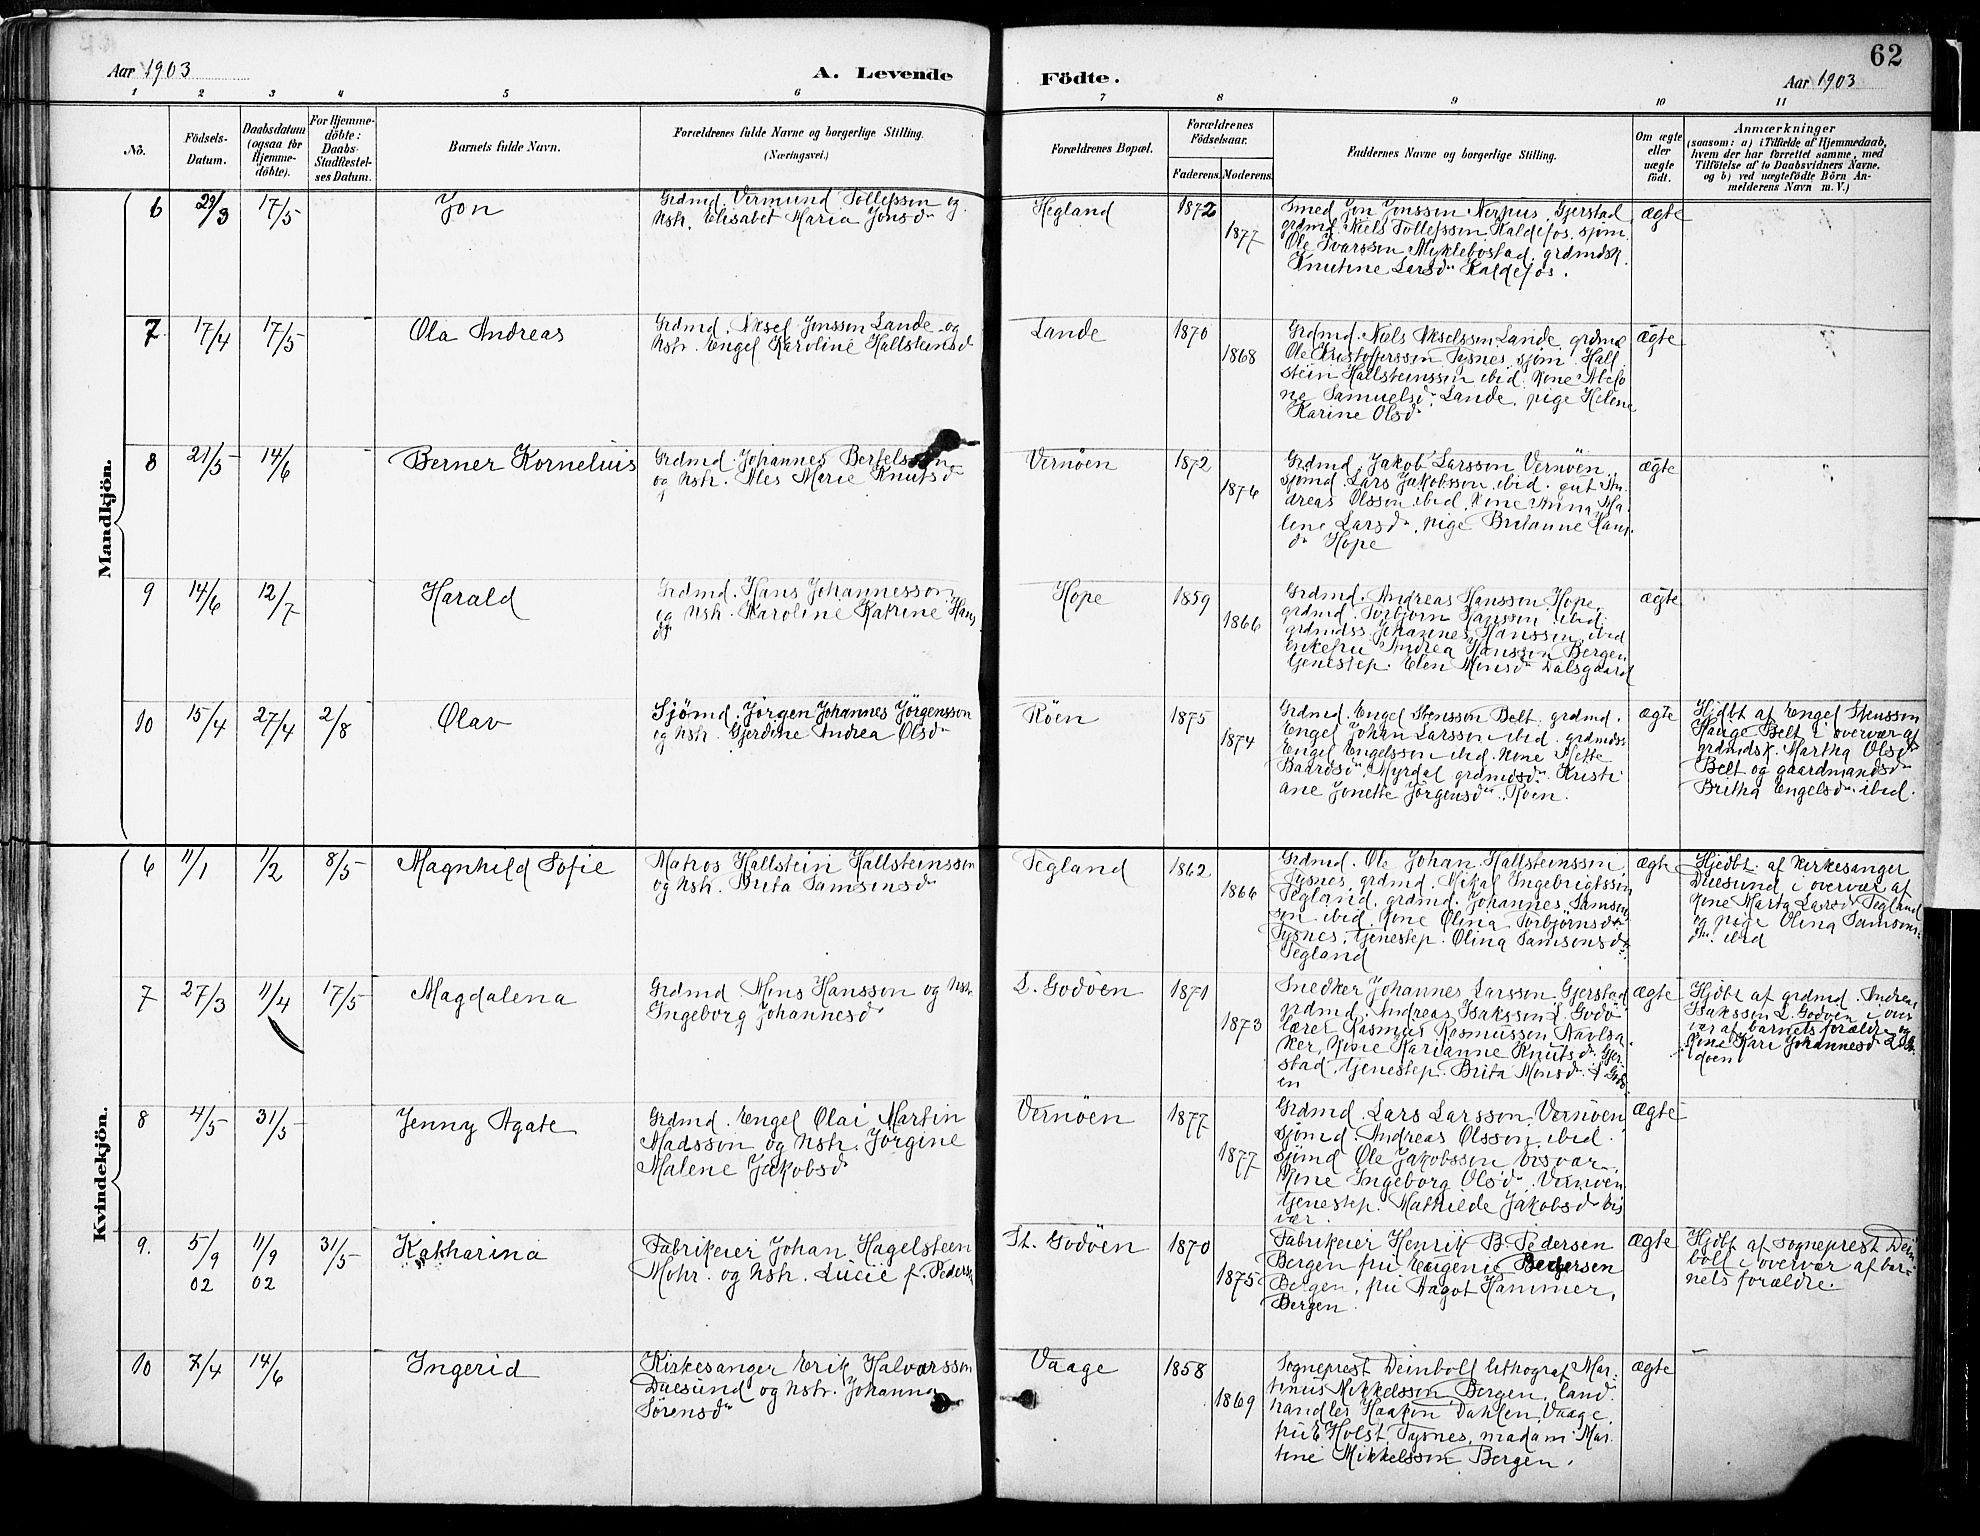 62
Aar 1903
A. Levende
Födte.
Aar 1903
1 2 3 4 5 6 7 8 9 10 11
Nô.
Födsels-
Datum.
Daabsdatum
(ogsaa for
Hjemme-
döbte).
For Hjemme-
döbte:
Daabs-
Stadfestel-
ses Datum.
Barnets fulde Navn.
Forældrenes fulde Navne og borgerlige Stilling.
(Næringsvei.)
Forældrenes Bopæl.
Forældrenes
Födselsaar.
Faderens.
Moderens.
Faddernes Navne og borgerlige Stilling.
Om ægte
eller
uægte
födt.
Anmærkninger
(saasom: a) i Tilfælde af Hjemmedaab,
hvem der har forrettet samme, med
Tilföielse af to Daabsvidners Navne,
og b) ved uægtefödte Börn An-
melderens Navn m. V.)
Mandkjön.
6 29/3 17/5
Jon
Grdmd. Vermund Tollefsson og
hstr. Elisabet Maria Jonsdr
Hegland
1872
1877
Smed Jon Jonsson Nerhus, Gjerstad
grdmd. Niels Tollefsson Kaldefos. sjøm.
Ole Ivarsson Myklebostad. grdmdsk.
Knutine Larsdr Kaldefos.
ægte
7 17/4 17/5
Ola Andreas
Grdmd. Aksel Jonsson Lande og
hstr. Engel Karoline Hallsteinsd
Lande
1870
1868
Grdmd. Niels Akselsson Lande, grdmd
Ole Kristoffersson Tysnes, sjøm. Hall
stein Hallsteinsson ibid. kone Abelo
ne Samuelsdr Lande, pige Helene
Karine Olsdr
ægte
8 21/5 14/6
Berner Kornelius
Grdmd. Johannes Bertelsson
og hstr. Ales Marie Knutsdr
Vernöen
1872
1876
Grdmd. Jakob Larsson Vernöen,
sjömd. Lars Jakobsson ibid. gut An
dreas Olsson ibid. kone Anna Ma
lene Larsdr, pige Britanne Hans
dr Hope
ægte
9 14/6 12/7
Harald
Grdmd. Hans Johannesson
og hstr. Karoline Katrine Hans
dr
Hope
1859
1866
Grdmd. Andreas Hansson Hope,
grdmd. Torbjörn Hansson ibid.
grdmdss. Johannes Hansson ibid
Enkefru Andrea Hansson Bergen,
tjenestep. Elen Monsdr Dalsgaard
ægte
10 15/4 27/4 2/8
Olav
Sjömd. Jörgen Johannes Jörgensson
og hstr. Gjerdine Andrea Olsdr
Röen
1875
1874
Grdmd. Engel Stensson Belt. grdmd.
Engel Johan Larsson ibid. grdmdss
Engel Engelsson ibid. kone Mette
Baardsdr Myrdal grdmdsdr. Kristi
ane Jonette Jörgensdr. Röen.
ægte
Hjdbt af Engel Stensson
Hauge Belt i overvær af
grdmdsk. Martha Olsdr
Belt og gaardmandsdr
Britha Engelsdr. ibid.
Kvindekjön.
6 11/1 1/2 8/5
Magnhild Sofie
Matros Hallstein Hallsteinsson
og hstr. Brita Samsonsdr
Tegland
1862
1866
Grdmd. Ole Johan Hallsteinsson
Tysnes, grdmd. Mikal Ingebrigtsson
Tegland, grdmd. Johannes Samsons
son ibid. kone Olina Torbjörnsdr
Tysnes, tjenestep. Olina Samsonsdr.
Tegland
ægte
Hjedbt. af kirkesanger
Duesund i overvær af
kone Marta Larsdr Tegland
og pige Olina Samsons-
dr. ibid
7 27/3 11/4 17/5
Magdalena
Grdmd. Mons Hansson og hstr.
Ingeborg Johannesdr
L. Godöen
1871
1873
Snedker Johannes Larsson Gjerstad
grdmd. Andreas Isaksson L. Godö
lærer Rasmus Rasmussen Navlsa
ker, kone Karianne Knutsdr. Gjer
stad, tjenestep. Brita Monsdr. L Godö
en
ægte
Hjdbt af grdmd. Andreas
Isaksson L. Godöen i over
vær af barnets forældre og
kone Kari Johannesdr L Go
döen
8 4/5 31/5
Jenny Agate
Grdmd. Engel Olai Martin
Madsson og hstr. Jörgine
Malene Jakobsdr
Vernöen
1877
1877
Grdmd. Lars Larsson Vernöen
sjömd. Andreas Olsson ibid.
sjömd Ole Jakobsson
Kone Ingeborg Olsdr Vernöen
tjenestep. Mathilde Jakobsdr
vær.
ægte
9. 5/9 02 11/9 02 31/5
Katharina
Fabrikeier Johan Hagelsteen
Mohr. og hstr. Lucie f. Pedersen
St. Godöen
1870
1875
Fabrikeier Henrik B. Pedersen
Bergen fru Eugenie Pedersen
Bergen, fru Aagot Hammer,
Bergen
ægte
Hjdbt af sogneprest Dein
boll i overvær af bar-
nets forældre.
10 7/4 14/6
Ingerid
Kirkesanger Erik Halvarsson
Duesund og hstr. Johanna
Sörensdr
Vaage
1858
1869
Sogneprest Deinboll lithograf Mar-
tinus Mikkelsson Bergen, land
handler Haakon Dahlen Vaage,
fru E Holst Tysnes, madam Mar
tine Mikkelsson Bergen.
ægte